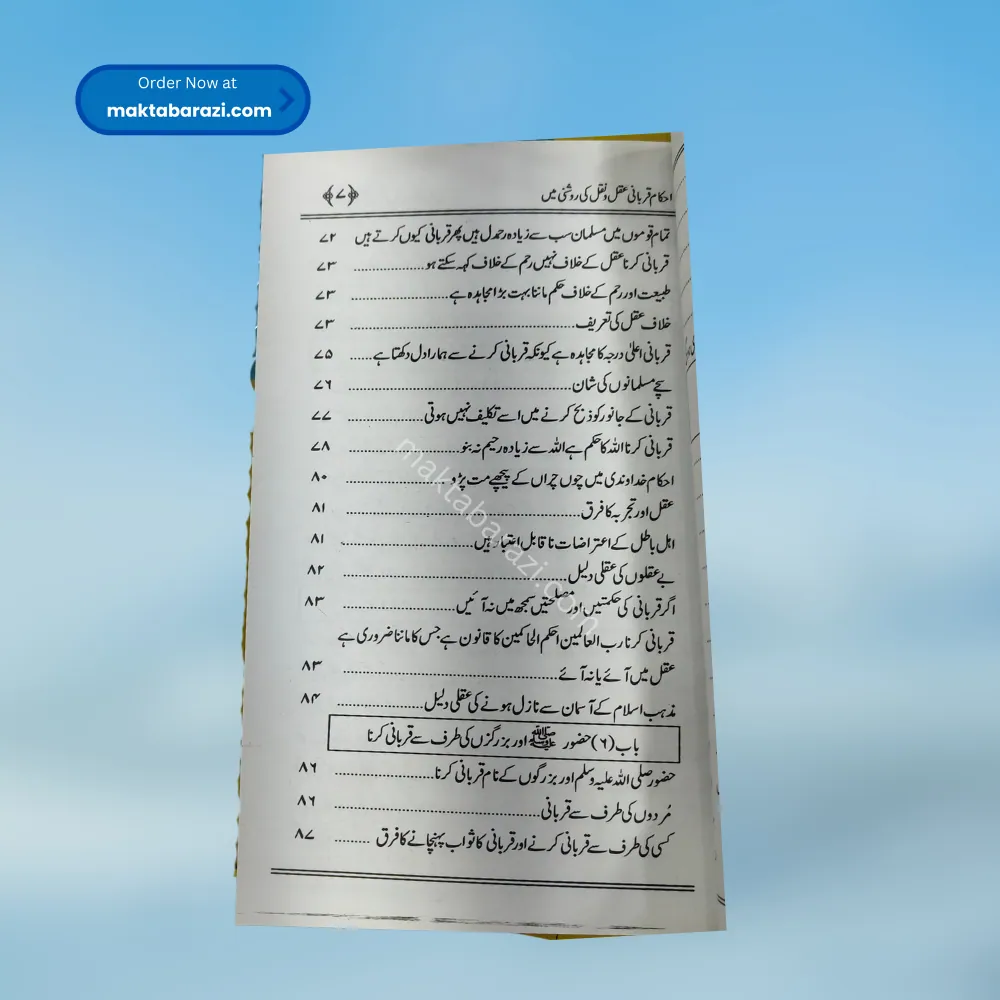 Order Now at
maktabarazi.com
احکام قربانی عقل و نقل کی روشنی میں ﴿۷﴾
تمام قوموں میں مسلمان سب سے زیادہ رحمدل ہیں پھر قربانی کیوں کرتے ہیں ۷۲
قربانی کرنا عقل کے خلاف نہیں رحم کے خلاف کہہ سکتے ہو ........................ ۷۳
طبیعت اور رحم کے خلاف حکم ماننا بہت بڑا مجاہدہ ہے ........................ ۷۳
خلاف عقل کی تعریف ........................ ۷۳
قربانی اعلیٰ درجہ کا مجاہدہ ہے کیونکہ قربانی کرنے سے ہمارا دل دکھتا ہے ...... ۷۵
سچے مسلمانوں کی شان ........................ ۷۶
قربانی کے جانور کو ذبح کرنے میں اسے تکلیف نہیں ہوتی ........................ ۷۷
قربانی کرنا اللہ کا حکم ہے اللہ سے زیادہ رحیم نہ بنو ........................ ۷۸
احکام خداوندی میں چوں چراں کے پیچھے مت پڑو ........................ ۸۰
عقل اور تجربہ کا فرق ........................ ۸۱
اہل باطل کے اعتراضات ناقابل اعتبار ہیں ........................ ۸۱
بے عقلوں کی عقلی دلیل ........................ ۸۲
اگر قربانی کی حکمتیں اور مصلحتیں سمجھ میں نہ آئیں ........................ ۸۳
قربانی کرنا رب العالمین احکم الحاکمین کا قانون ہے جس کا ماننا ضروری ہے
عقل میں آئے یا نہ آئے ........................ ۸۳
مذہب اسلام کے آسمان سے نازل ہونے کی عقلی دلیل ........................ ۸۴
باب (۶) حضور ﷺ اور بزرگزں کی طرف سے قربانی کرنا
حضور صلی اللہ علیہ وسلم اور بزرگوں کے نام قربانی کرنا ........................ ۸۶
مُردوں کی طرف سے قربانی ........................ ۸۶
کسی کی طرف سے قربانی کرنے اور قربانی کا ثواب پہنچانے کا فرق ......... ۸۷
maktabarazi.com